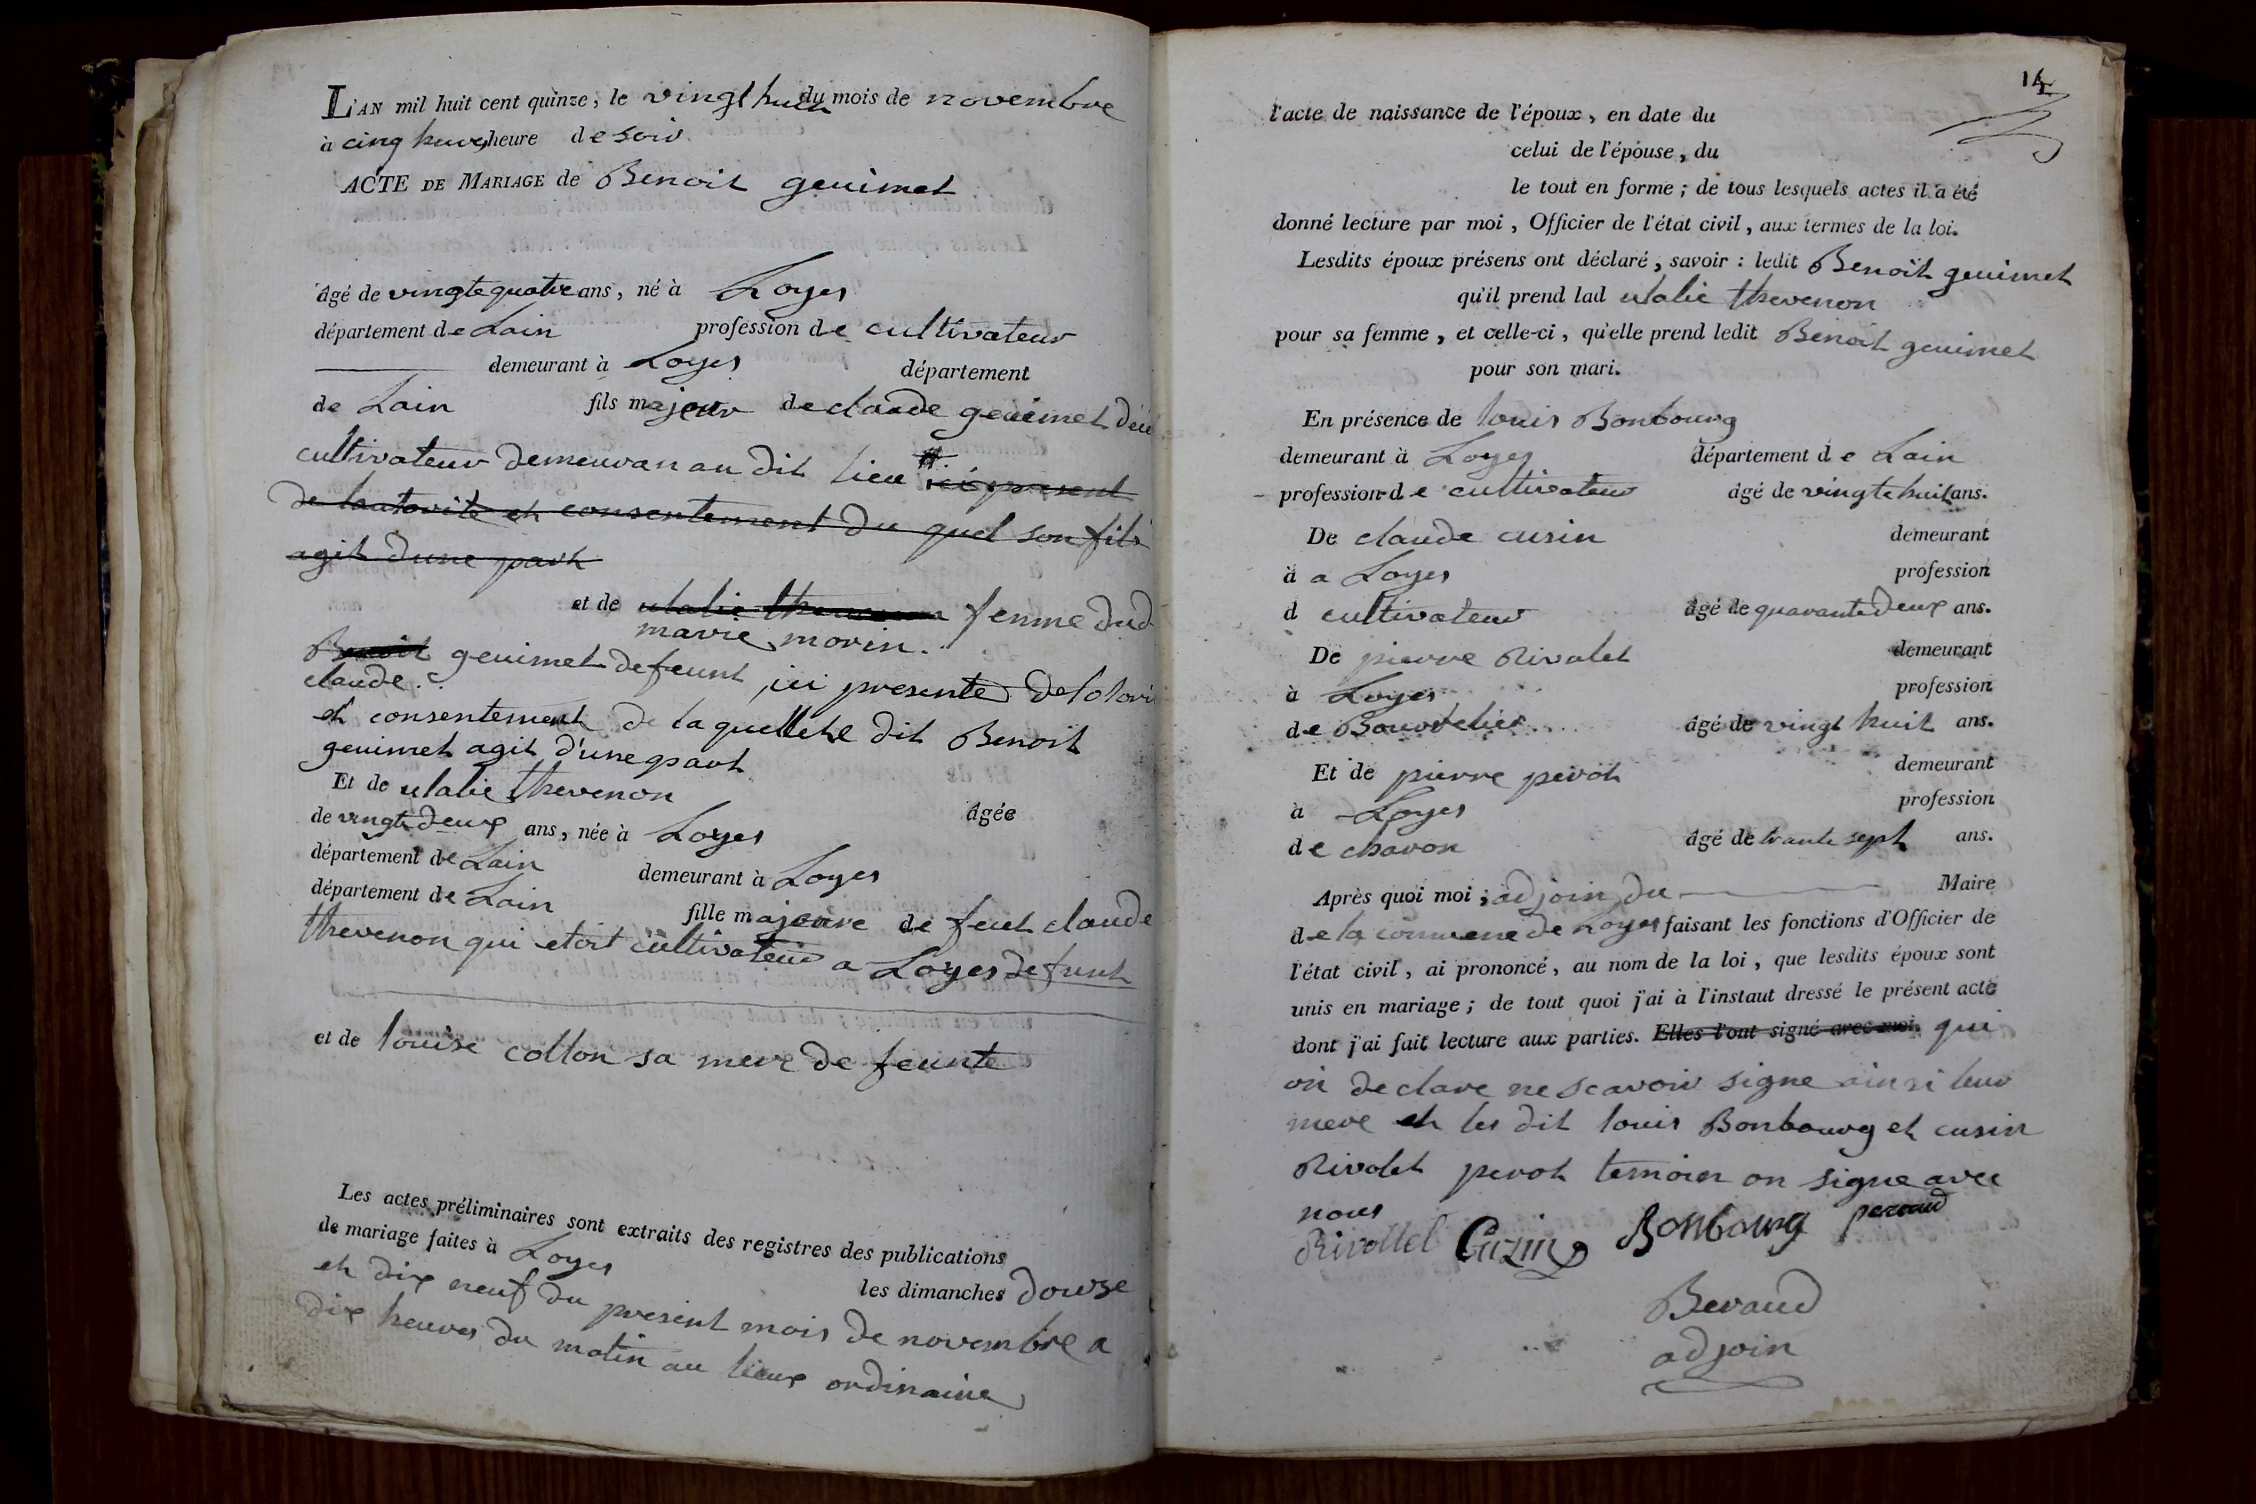 L'AN mil huit cent quinze, le vingt huit du mois de novembre
à cinq heures heure de soir
ACTE DE MARIAGE de Benoit geuimet
âgé de vingtequatre ans, né à Loyes
département de Lain profession de cultivateur
demeurant à Loyes département
de Lain fils majeur de claude geuimet
cultivateur demeuran au dit lieu ici present
de lautorité et consentement du quel son fils
agit dune part
et de ulalie thevenon femme dud
marie morin.
Benoit geuimet defeunt ici presente de lotori
claude.
et consentement de laquelle le dit Benoit
geuimet agit d'une part
Et de ulalie thevenon âgée
de vingtedeux ans, née à Loyes
département de Lain demeurant à Loyes
département de Lain fille majeure de feut claude
thevenon qui etoit cultivateur a Loyes defunt
et de louise collon sa mere de feunte
Les actes préliminaires sont extraits des registres des publications
de mariage faites à Loyes les dimanches douze
et dix neuf du present mois de novembre a
dix heures du matin au lieux ordinaire
14
l'acte de naissance de l'époux, en date du
celui de l'épouse, du
le tout en forme; de tous lesquels actes il a été
donné lecture par moi, Officier de l'état civil, aux termes de la loi.
Lesdits époux présens ont déclaré, savoir: ledit Benoit geuimet
qu'il prend lad ulalie thevenon
pour sa femme, et celle-ci, qu'elle prend ledit Benoit geuimet
pour son mari.
En présence de louis Bonbourg
demeurant à Loyes département de Lain
profession de cultivateur âgé de vingtehuit ans.
De claude cusin demeurant
à a Loyes profession
d cultivateur âgé de quarantedeux ans.
De pierre Rivolet demeurant
à Loyes profession
de Bourrelier âgé de vingt huit ans.
Et de pierre perot demeurant
à Loyes profession
de charon âgé de trante sept ans.
Après quoi moi, adjoin du Maire
de la commene de Loyes faisant les fonctions d'Officier de
l'état civil, ai prononcé, au nom de la loi, que lesdits époux sont
unis en mariage; de tout quoi j'ai à l'instant dressé le présent acte
dont j'ai fait lecture aux parties. Elles l'ont signé avec moi. qui
on declare ne scavoir signe ainsi leur
mere et les dit louis Bonbourg et cusin
Rivolet perot temoien on signe avec
nous
Rivollel Cuzin Bonbourg peraud
Beraud
adjoin